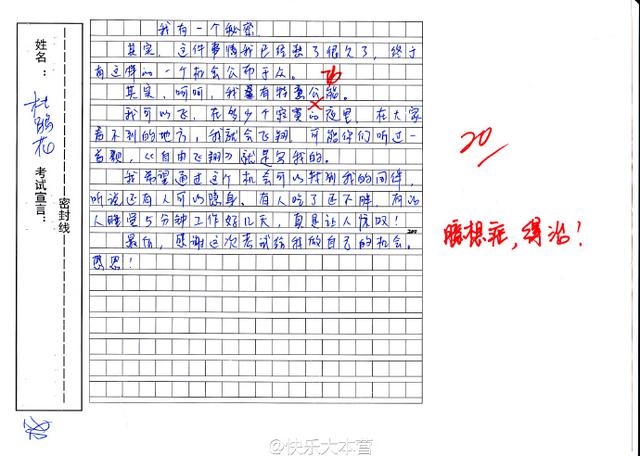 我有一个秘密
其实,这件事情我已经憋了很久了,终于
有这样的一个机会公布于众。
其实,呵呵,我是有特意公能。
功
我可以飞,在多少个寂寞的夜里,在大家
看不到的地方,我就会飞翔,可能你们听过一
首歌,《自由飞翔》就是写我的。
我希望通过这个机会可以找到我的同伴,
听说还有人可以隐身,有人吃了还不胖,有的
人睡觉5分钟工作好几天,真是让人惊叹!
最后,感谢这次考试给我做自己的机会。
恩恩!
姓名:
杜
考试宣言:
密封线
20
臆想症,得治!
@快乐大本营